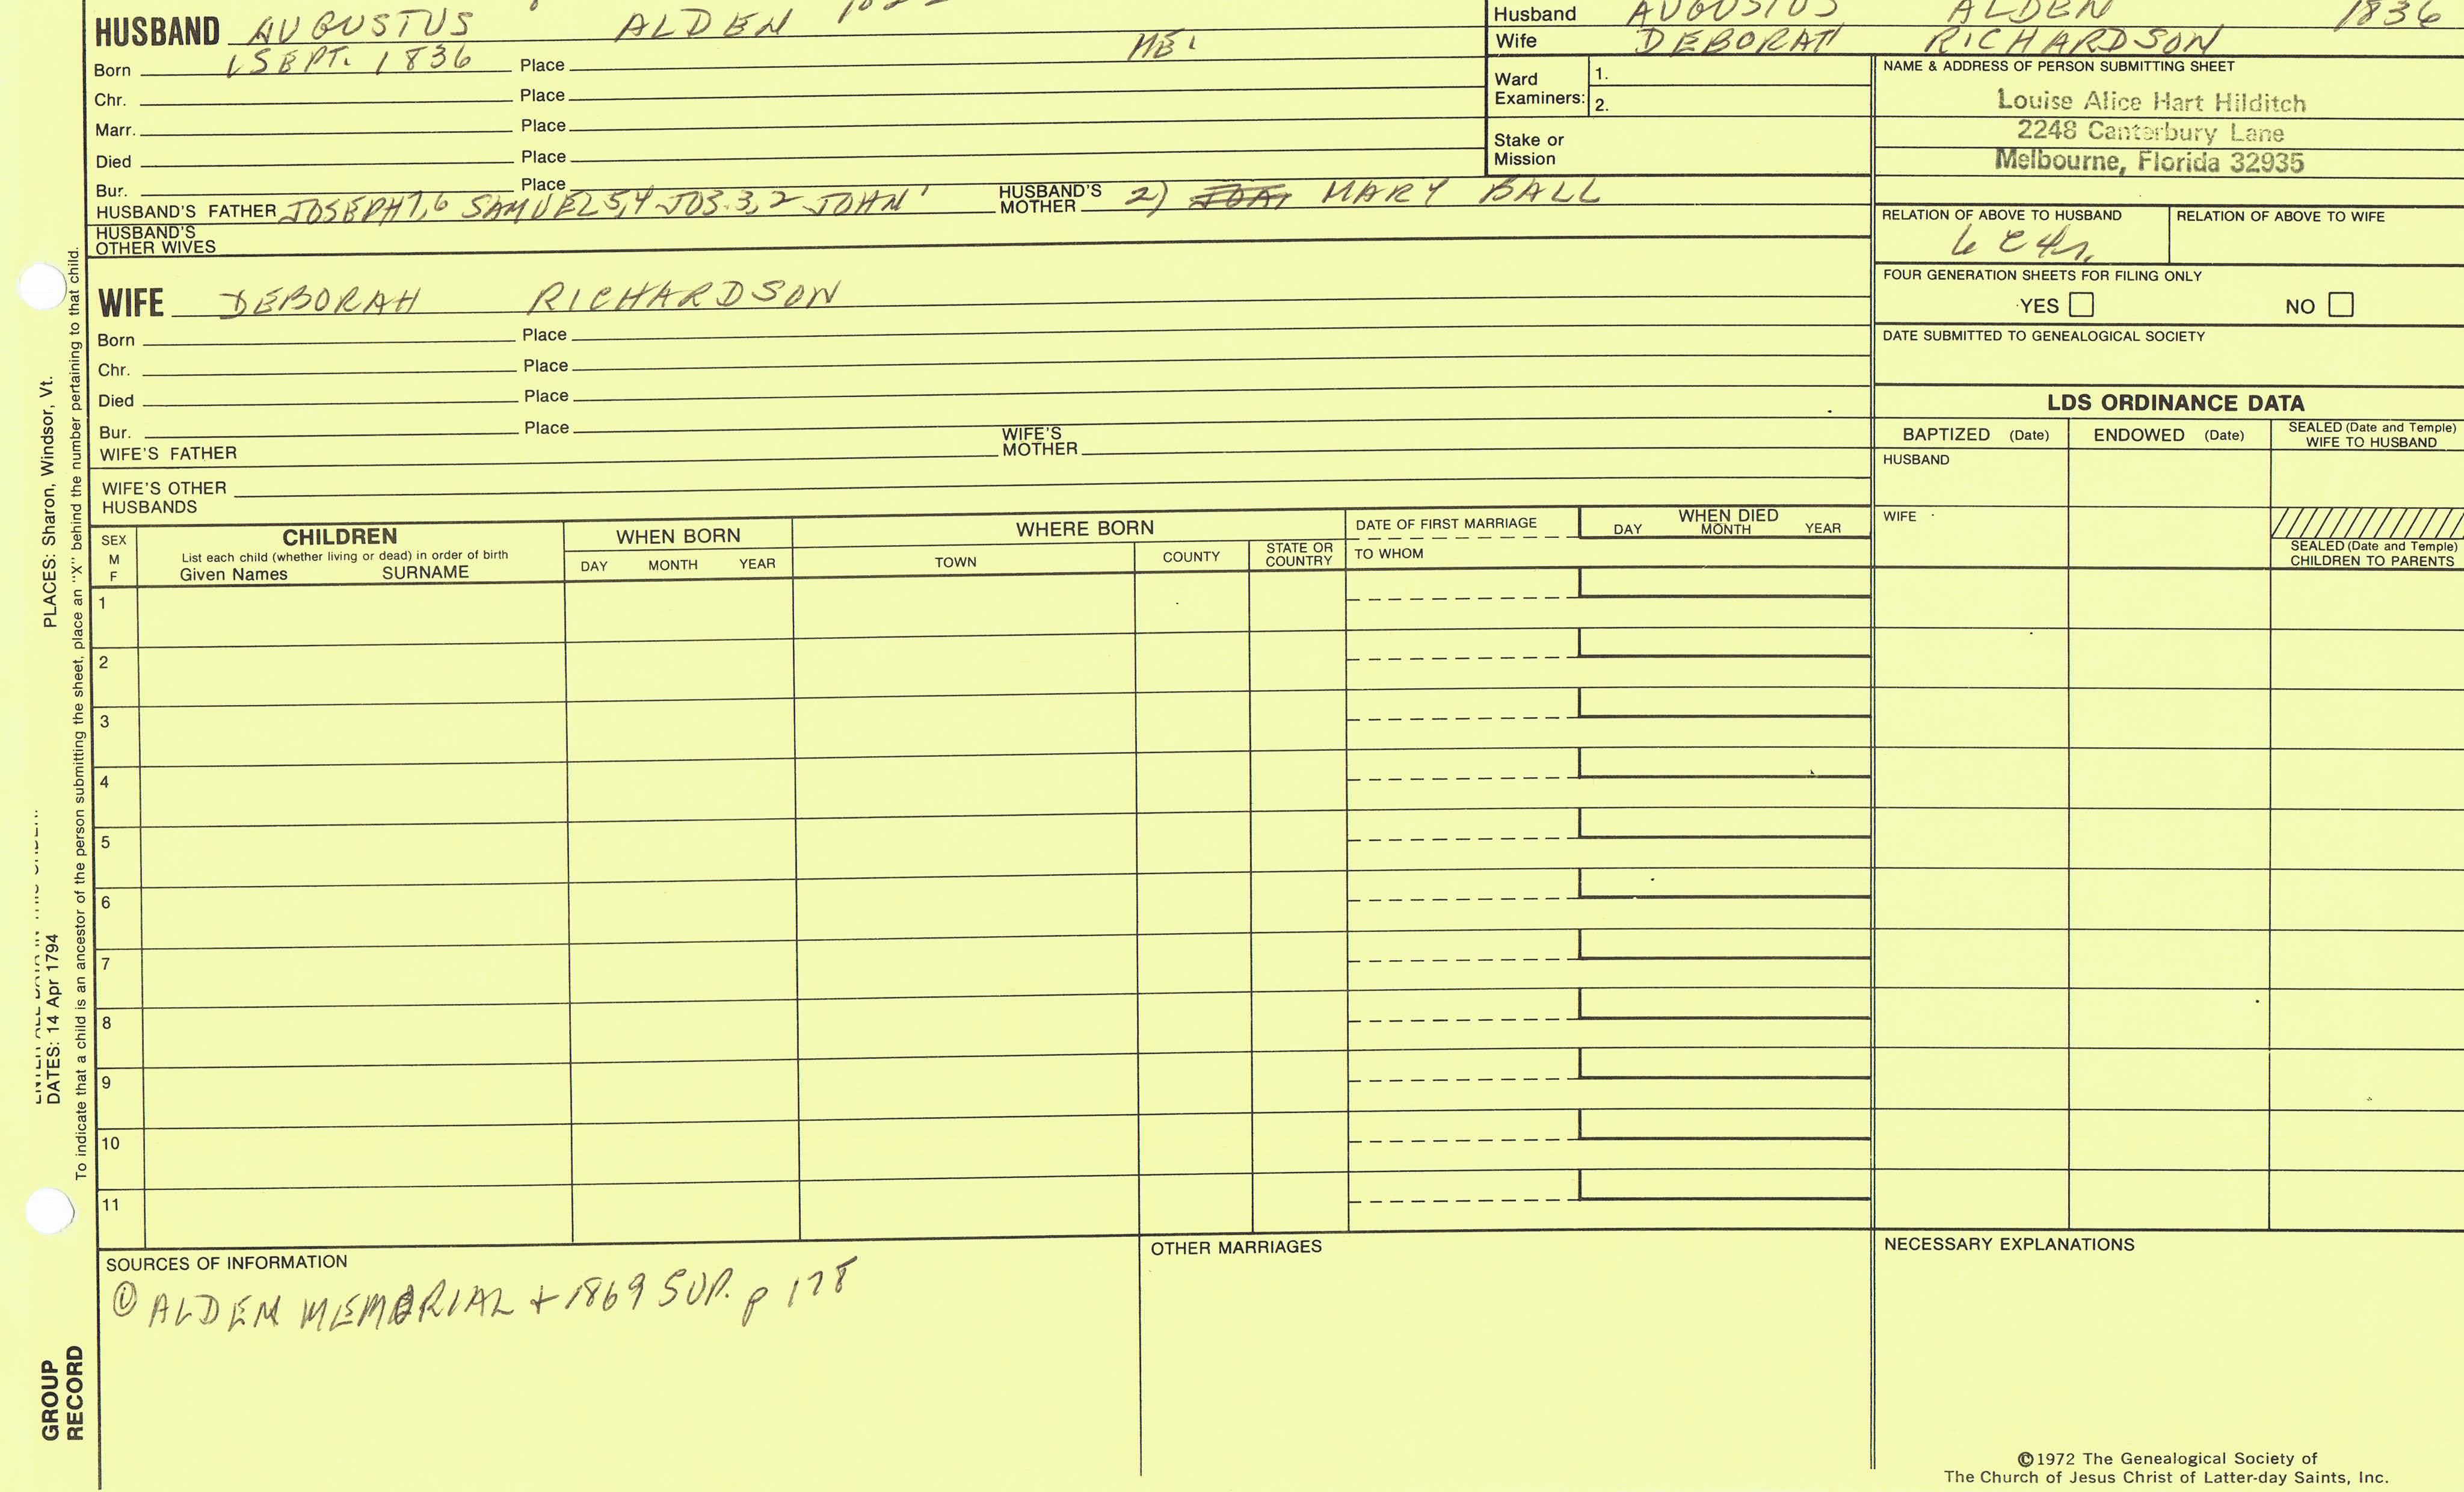 HUSBAND AUGUSTUS ALDEN
Born 1 SEPT. 1836 Place ME.
Chr. Place
Marr. Place
Died Place
Bur. Place
HUSBAND'S FATHER JOSEPH 7,6 SAMUEL 5,4 JOS. 3,2 JOHN 1 HUSBAND'S MOTHER 2) MARY BALL
HUSBAND'S OTHER WIVES
Husband AUGUSTUS ALDEN 1836
Wife DEBORAH RICHARDSON
Ward Examiners: 1.
2.
Stake or Mission
NAME & ADDRESS OF PERSON SUBMITTING SHEET
Louise Alice Hart Hilditch
2248 Canterbury Lane
Melbourne, Florida 32935
RELATION OF ABOVE TO HUSBAND RELATION OF ABOVE TO WIFE
6 C 4 r.
FOUR GENERATION SHEETS FOR FILING ONLY
YES NO
DATE SUBMITTED TO GENEALOGICAL SOCIETY
WIFE DEBORAH RICHARDSON
Born Place
Chr. Place
Died Place
Bur. Place
WIFE'S FATHER WIFE'S MOTHER
WIFE'S OTHER HUSBANDS
LDS ORDINANCE DATA
BAPTIZED (Date) ENDOWED (Date) SEALED (Date and Temple) WIFE TO HUSBAND
HUSBAND
WIFE
SEALED (Date and Temple) CHILDREN TO PARENTS
SEX M F
CHILDREN
List each child (whether living or dead) in order of birth
Given Names SURNAME
WHEN BORN
DAY MONTH YEAR
WHERE BORN
TOWN COUNTY STATE OR COUNTRY
DATE OF FIRST MARRIAGE
TO WHOM
WHEN DIED
DAY MONTH YEAR
1
2
3
4
5
6
7
8
9
10
11
SOURCES OF INFORMATION
① ALDEN MEMORIAL + 1869 SUP. p 178
OTHER MARRIAGES
NECESSARY EXPLANATIONS
©1972 The Genealogical Society of
The Church of Jesus Christ of Latter-day Saints, Inc.
PLACES: Sharon, Windsor, Vt.
DATES: 14 Apr 1794
To indicate that a child is an ancestor of the person submitting the sheet, place an "X" behind the number pertaining to that child.
GROUP
RECORD